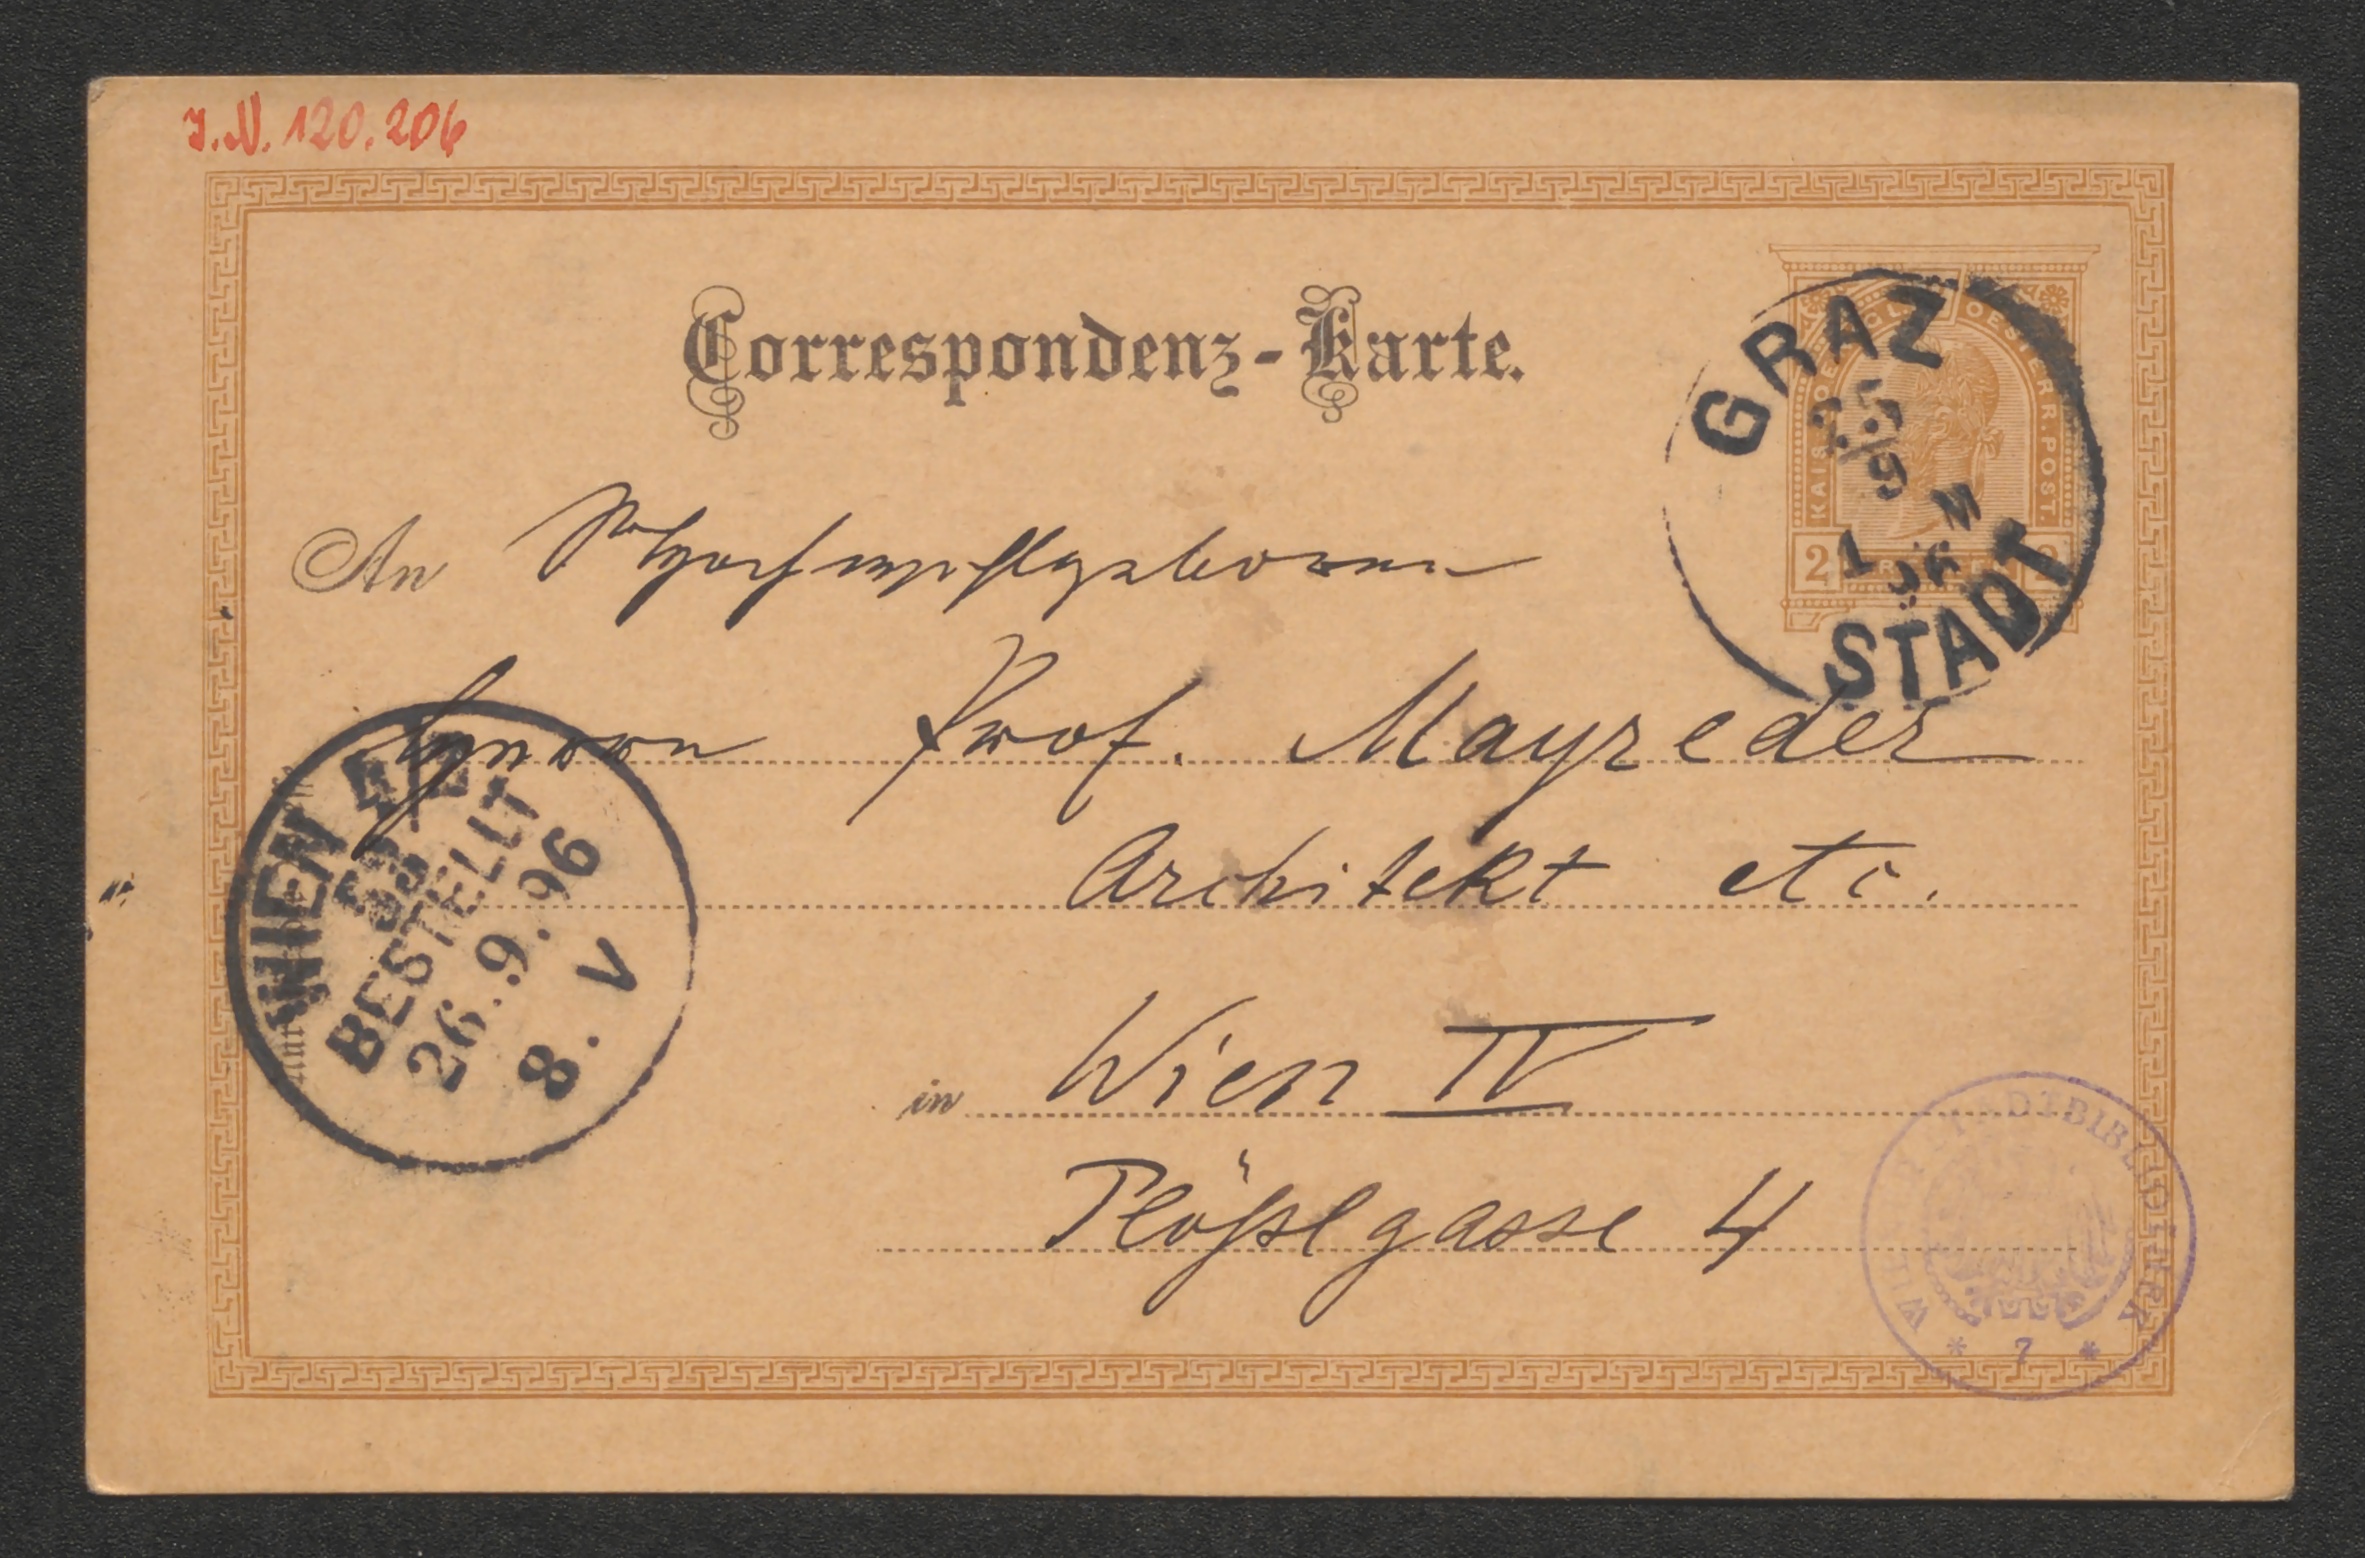 J.N. 120.206
Correspondenz-Karte.
GRAZ
25/9
96
STADT
KAIS. OESTERR. POST.
2 2
An Hochwohlgeboren
Herrn Prof. Mayreder
Architekt etc.
in Wien IV
Plößlgasse 4
WIEN 4/1
BESTELLT
26.9.96
8. V
STADTBIBLIOTHEK
* 7 *